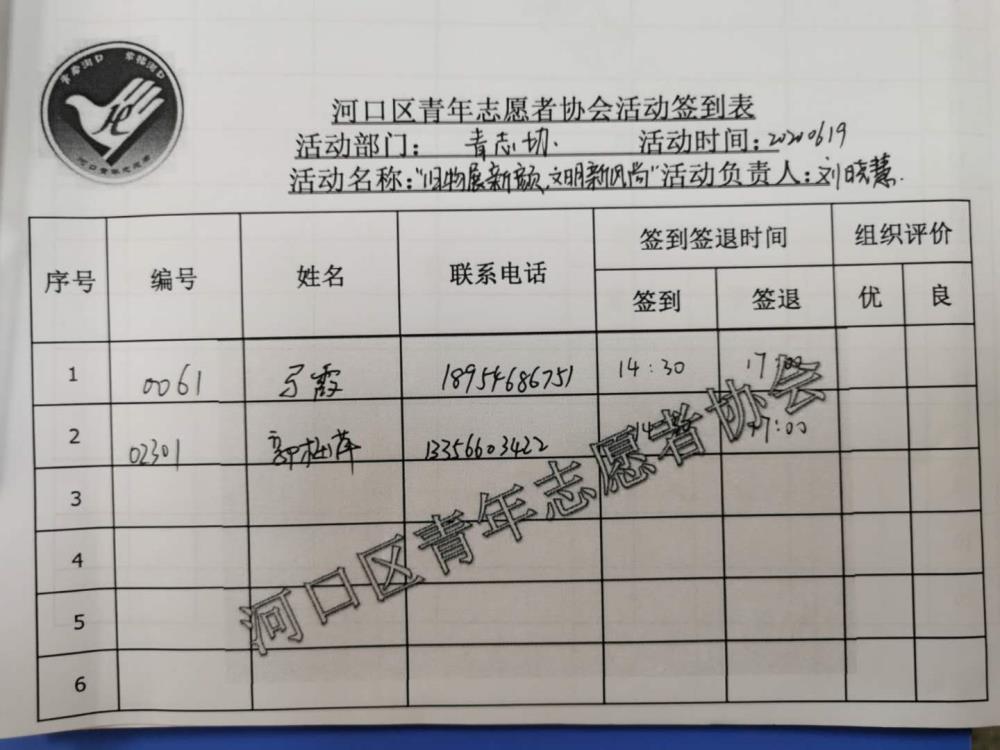 河口区青年志愿者协会活动签到表
活动部门：青志协 活动时间：20200619
活动名称：“归物展新颜,文明新风尚”活动负责人：刘晓慧.
序号 编号 姓名 联系电话 签到签退时间 组织评价
签到 签退 优 良
1 0061 霞 18954686751 14:30 17:00
2 02301 郭 萍 13356603422 14 17:00
3
4
5
6
河口区青年志愿者协会